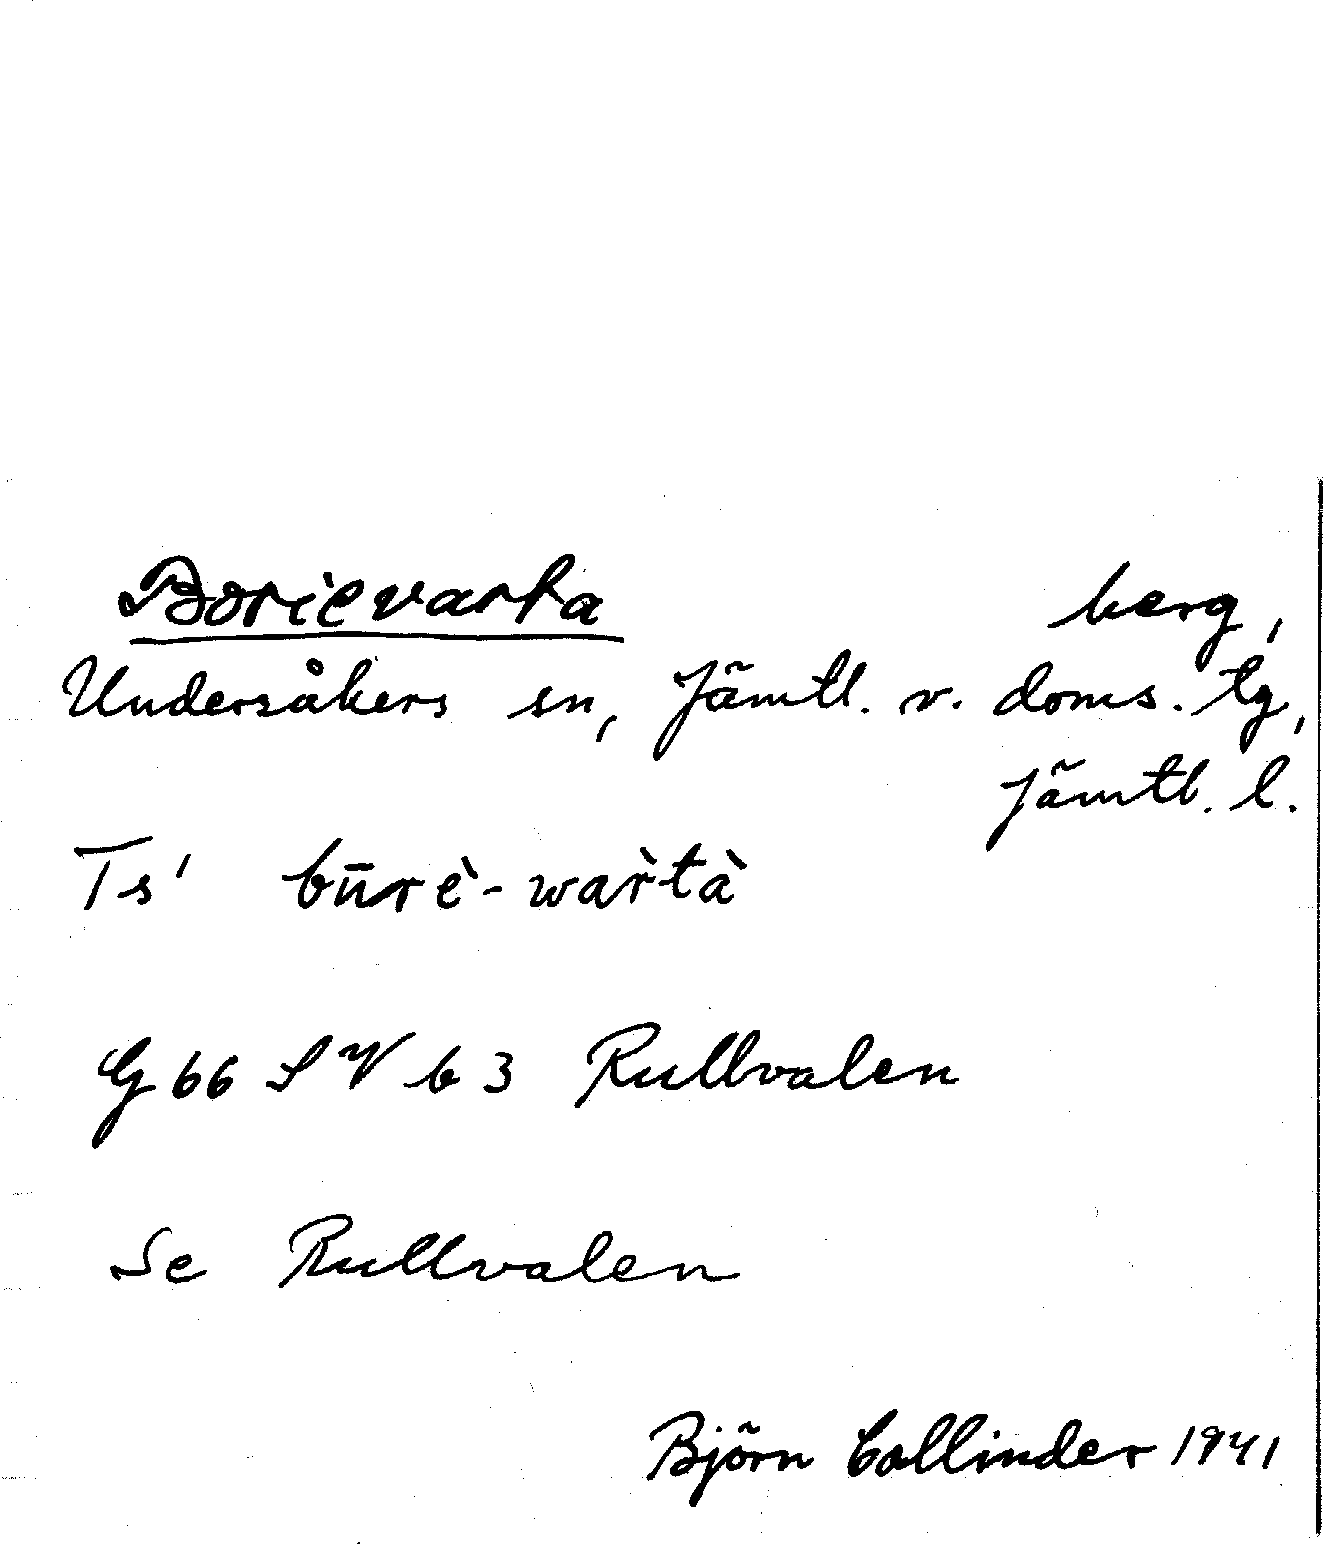 Borievarta berg,
Undersåkers sn, Jämtl. v. doms. tg,
Jämtl. l.
Ts' būrè-war̀tà
G 66 SV b 3 Rullvalen
Se Rullvalen
Björn Collinder 1941